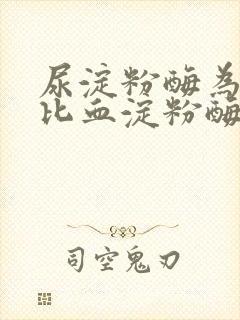 尿淀粉酶為
比血淀粉酶
司空鬼刃